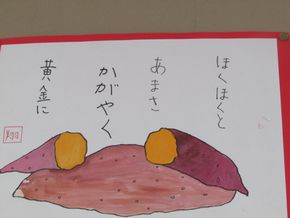 ほくほくと
あまさ
かがやく
黄金に